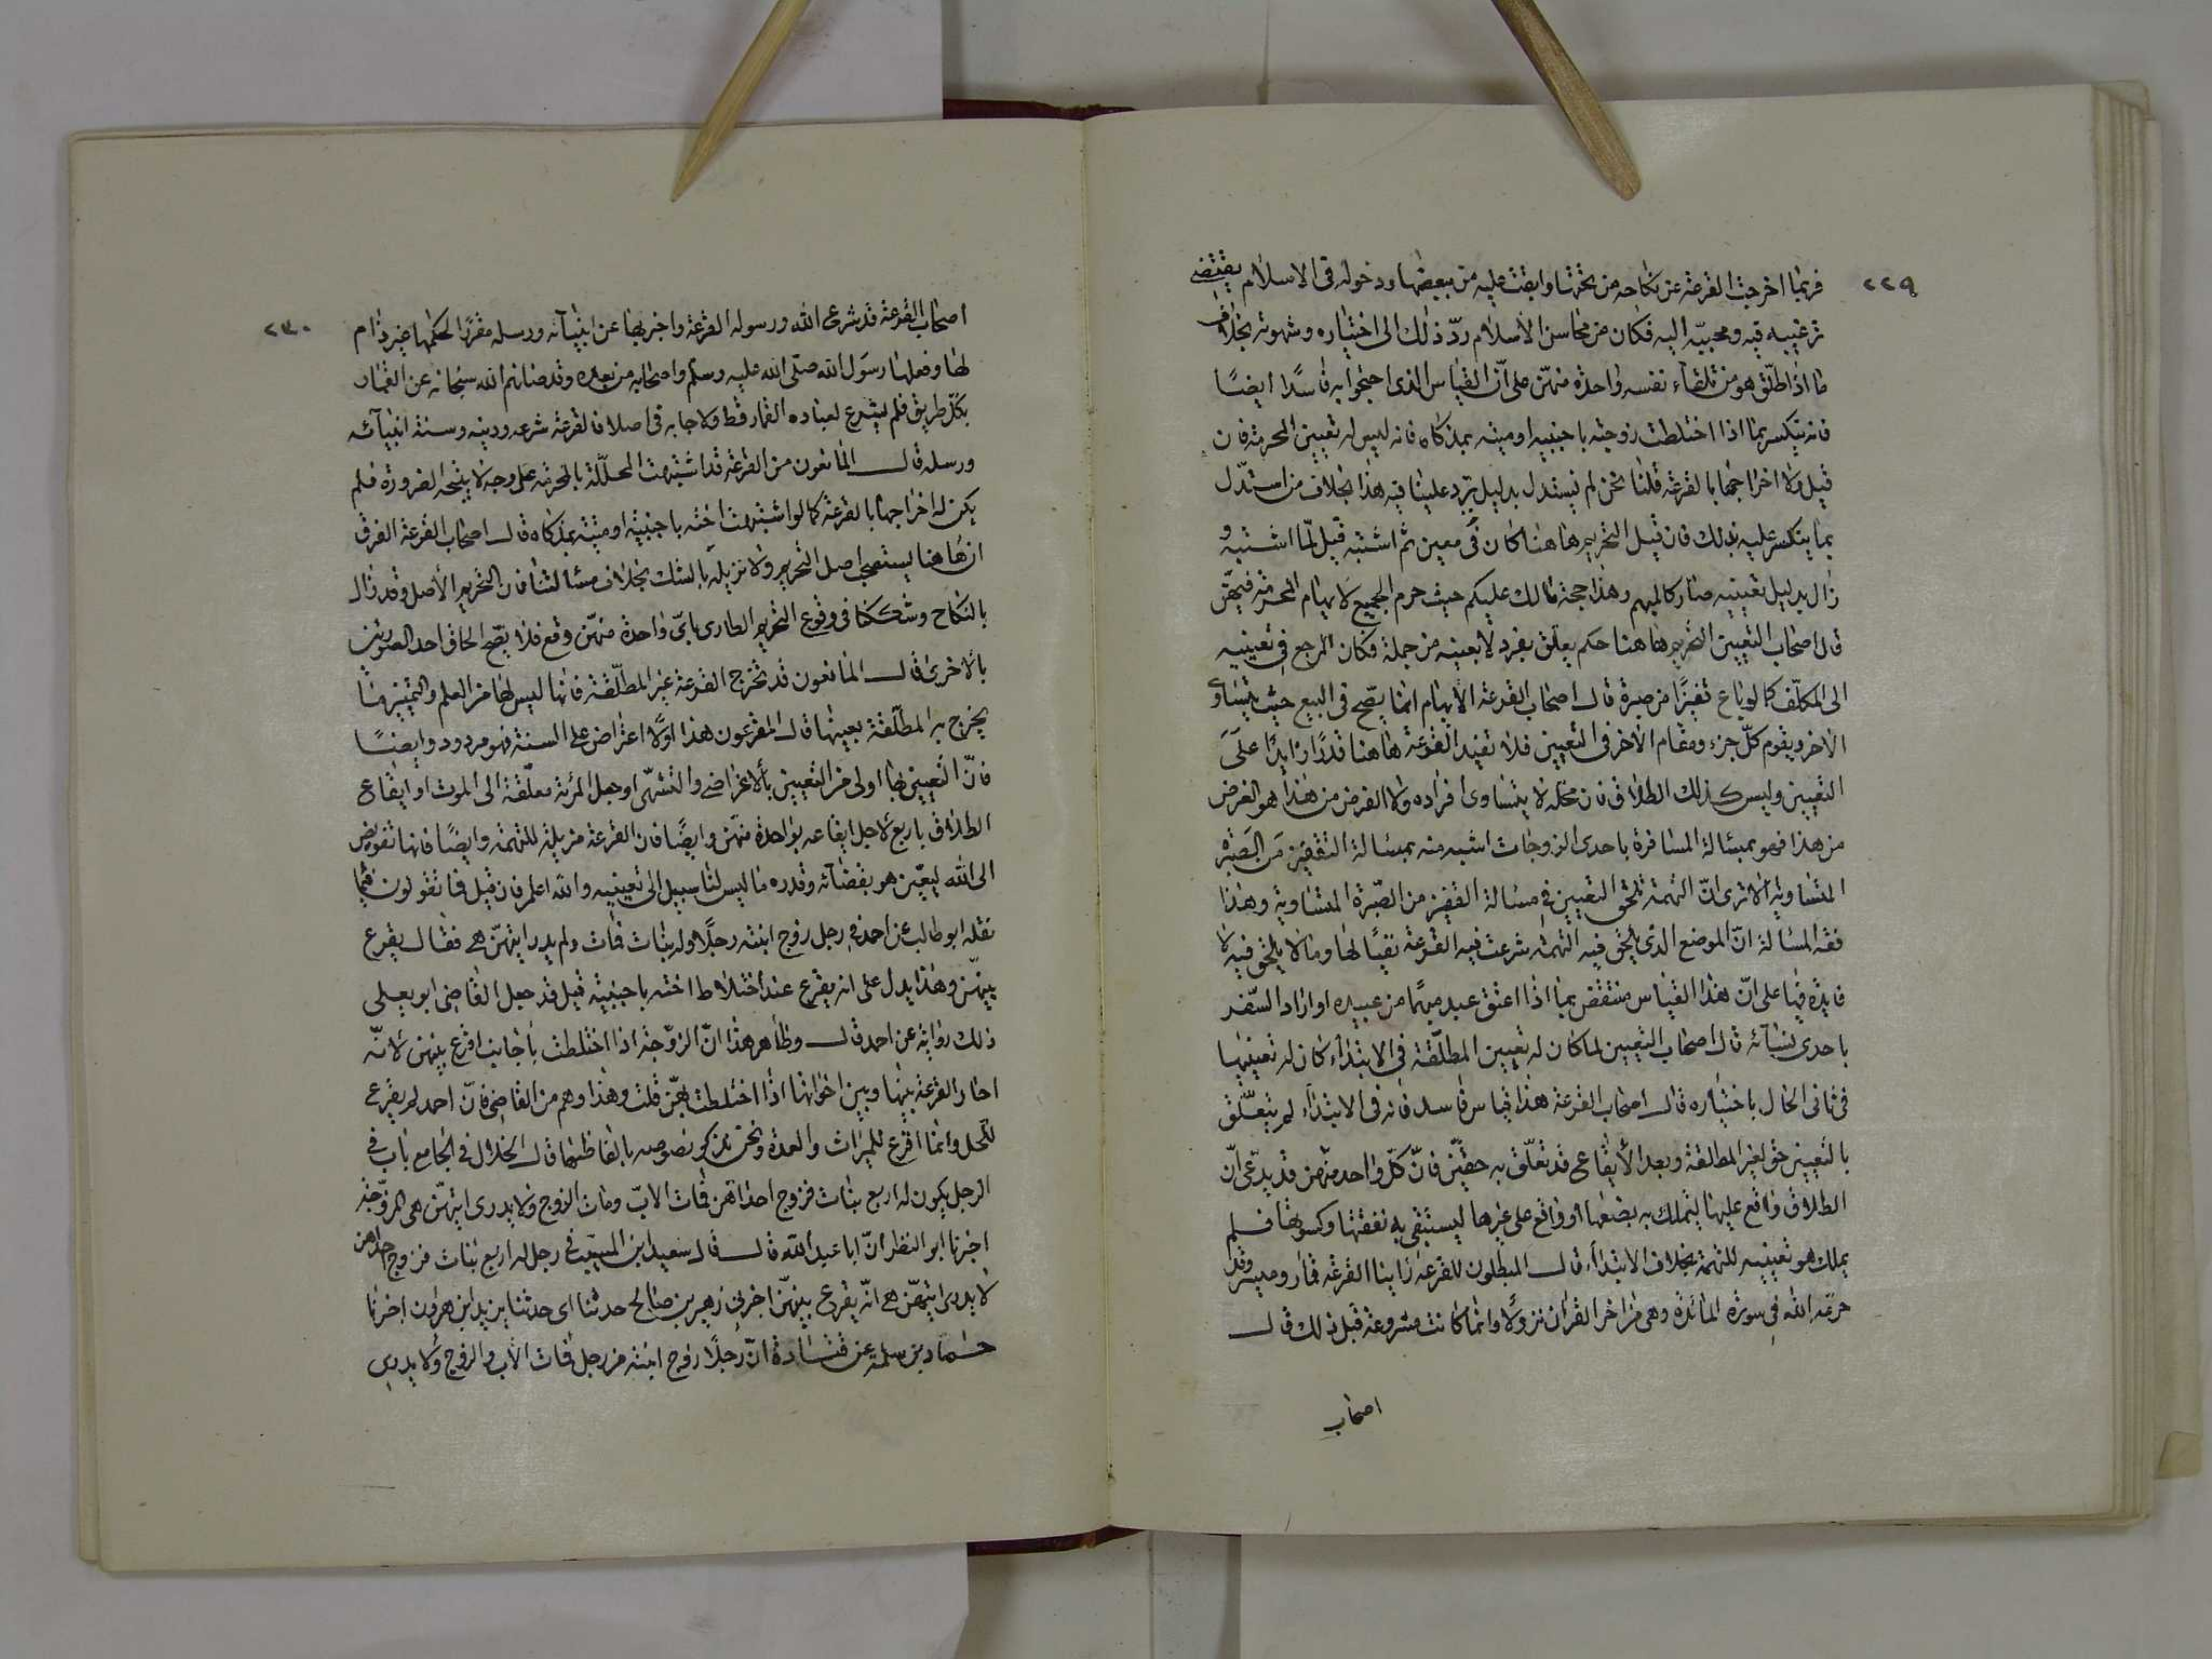 ٢٢٩
فربما اخرجت القرعة عن نكاحه من يختها وابقت عليه من يبغضها ودخوله فى الاسلام يقتضى
ترغيبه فيه ومحبته اليه فكان من محاسن الاسلام ردّ ذلك الى اختياره وشهوته بخلاف
ما اذا طلّق هو من تلقاء نفسه واحدة منهنّ على انّ القياس الذى احتجوا به فاسدًا ايضًا
فانه ينكسر بما اذا اختلطت زوجته باجنبيه او ميته بمذكاه فانه ليس له تعيين المحرمة فان
قيل ولا اخراجها بالقرعة قلنا نحن لم نستدل بدليل يرد علينا فيه هذا بخلاف من استدّل
بما ينكسر عليه بذلك فان قيل التحريم هاهنا كان فى معين ثم اشتبه قيل لمّا اشتبه و
زال بدليل تعيينه صار كالمبهم وهذا حجة مالك عليكم حيث حرم الجميع لابهام المحرمة فيهنّ
قال اصحاب التعيين التحريم هاهنا حكم يعلق بفرد لا بعينه من جملة فكان المرجع فى تعيينه
الى المكلّف كما لو باع قفيزًا من صبرة قال اصحاب القرعة الابهام انما يصّح فى البيع حيث يتساوى
الاخر ويقوم كلّ جزء ومقام الاخر فى التعيين فلا تفيد القرعة هاهنا قدرًا زايدًا على
التعيين وليس كذلك الطلاق فان محله لا يتساوى افراده ولا الغرض من هذا هو الغرض
من هذا فهو بمسالة المسافرة باحدى الزوجات اشبه منه بمسالة القفيز من الصبرة
المتساوية الا ترى انّ التهمة تلحق التعيين فى مسالة القفيز من الصّبرة المتساوية وهذا
فقه المسالة انّ الموضع الذى يلحق فيه التهمة شرعت فيه القرعة نفيًا لها وما لا يلحق فيه لا
فايدة فيها على انّ هذا القياس منتقض بما اذا اعتق عبد مبهمًا من عبيده او اراد السّفر
باحدى نسائه قال اصحاب التعيين لما كان له تعيين المطلّقة فى الابتداء كان له تعيينها
فى ثانى الحال باختياره قال اصحاب القرعة هذا قياس فاسد فانه فى الابتداء لم يتعلّق
بالتعيين حق لغير المطالقة وبعد الايقاع قد تعلّق به حقّين فانّ كلّ واحد منهن قد يدّعى انّ
الطلاق واقع عليها ليتملك به بضعها او واقع على غيرها ليستبقى به نفقتها وكسوتها فلم
يملك هو تعيينه للتهمة بخلاف الابتداء قال المبطلون للقرعة راينا القرعة قمار وميسر وقد
حرّمه الله فى سورة المائدة وهى من اخر القران نزولًا وانما كانت مشروعة قبل ذلك قال
اصحاب
٢٣٠
اصحاب القرعة قد شرع الله ورسوله القرعة واخبر بها عن انبيائه ورسله مقررًا لحكمها غير ذام
لها وفعلها رسول الله صلى الله عليه وسلم واصحابه من بعده وقد صانهم الله سبحانه عن القمار
بكلّ طريق فلم يشرع لعباده القمار قط ولا جا به فى اصلا فالقرعة شرعه ودينه وسنة انبيائه
ورسله قال المانعون من القرعة قد اشتبهت المحلّلة بالمحرمة على وجه لا يتجه الضرورة فلم
يكن له اخراجها بالقرعة كما لو اشتبهت اخته باجنبية او ميتة بمذكاه قال اصحاب القرعة الفرق
ان هاهنا يستصحب اصل التحريم ولا نزيله بالشك بخلاف مسالتنا فان التحريم الأصل وقد زال
بالنكاح وشككنا فى وقوع التحريم الطارى باىّ واحدة منهنّ وقع فلا يصّح الحاق احد الصورتين
بالاخرى قال المانعون قد تخرج القرعة غير المطلّقة فانها ليس لها من العلم والتمييز ما
يخرج به المطلّقة بعينها قال المقرعون هذا اوّلًا اعتراض على السنة فهو مردود وايضًا
فانّ التعيين بها اولى من التعيين بالاغراض والتشهّى او جعل المرئة معلّقة الى الموت او ايقاع
الطلاق باربع لاجل ايقاعه بواحدة منهنّ وايضًا فان القرعة مزيلة للتهمة وايضًا فانها تفويض
الى الله ليعيّن هو بقضائه وقدره ما ليس لنا سبيل الى تعيينه والله اعلم فان قيل فما تقولون فيما
نقله ابو طالب عن احمد فى رجل زوج ابنته رجلًا وله بنات فمات ولم يدر ايتهنّ هى فقال يقرع
بينهنّ وهذا يدل على انه يقرع عند اختلاط اخته باجنبية قيل قد جعل القاضى ابو يعلى
ذلك رواية عن احمد قال وظاهر هذا انّ الزوّجة اذا اختلطت باجانب اقرع بينهن لانّه
اجاز القرعة بينها وبين اخواتها اذا اختلطت بهنّ قلت وهذا وهم من القاضى فانّ احمد لم يقرع
للحل وانما اقرع للميراث والعدة ونحن نذكر نصوصه بالفاظها قال الخلال فى الجامع باب فى
الرجل يكون له اربع بنات فزوج احداهن فمات الابّ ومات الزوج ولا يدرى ايتهنّ هى المزوّجة
اخبرنا ابو النظر انّ ابا عبد الله قال قال سعيد ابن المسيّب فى رجل له اربع بنات فزوج احداهن
لا يدرى ايتهنّ هى انّه يقرع بينهنّ اخبرنى زهير بن صالح حدثنا ابى حدثنا يزيد ابن هرون اخبرنا
حماد بن سلمة عن قتادة انّ رجلًا زوج ابنته من رجل فمات الاب والزوج ولا يدرى